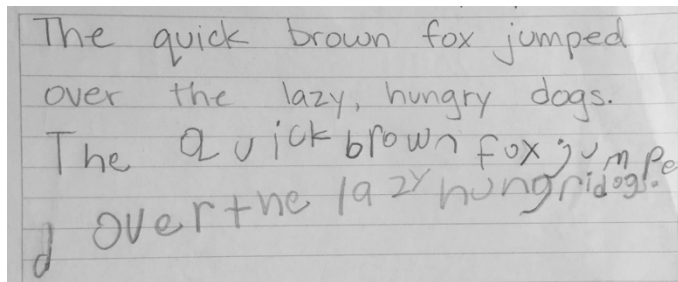 The quick brown fox jumped
over the lazy, hungry dogs.
The Quick brown fox jumpe
d over the lazy hungridogs.